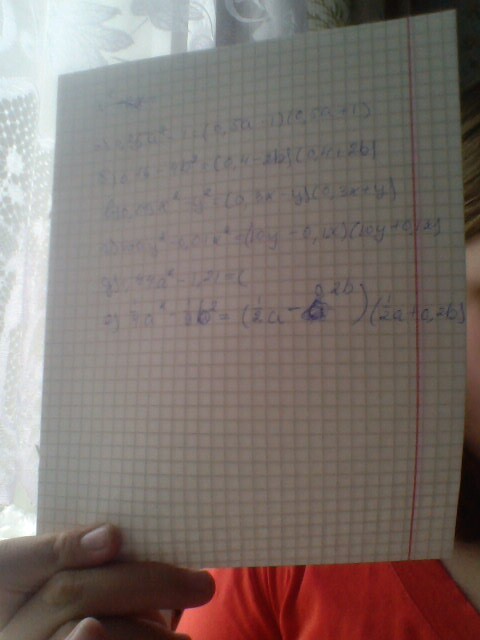 а) 0,25a² - 1 = (0,5a - 1)(0,5a + 1)
б) 0,16 - 4b² = (0,4 - 2b)(0,4 + 2b)
в) 0,09x² - y² = (0,3x - y)(0,3x + y)
г) 100y² - 0,01x² = (10y - 0,1x)(10y + 0,1x)
д) a² - 1,21 = (
a² - b² = (½a - 0,2b)(½a + 0,2b)